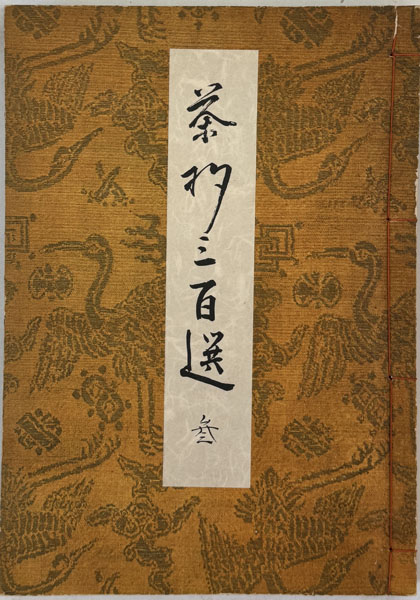 茶杓三百選
参